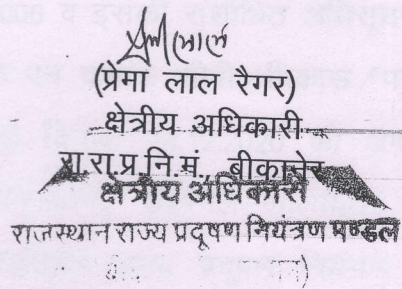 (प्रेमा लाल रैगर)
क्षेत्रीय अधिकारी
रा.रा.प्र.नि.मं., बीकानेर
क्षेत्रीय अधिकारी
राजस्थान राज्य प्रदूषण नियंत्रण मण्डल